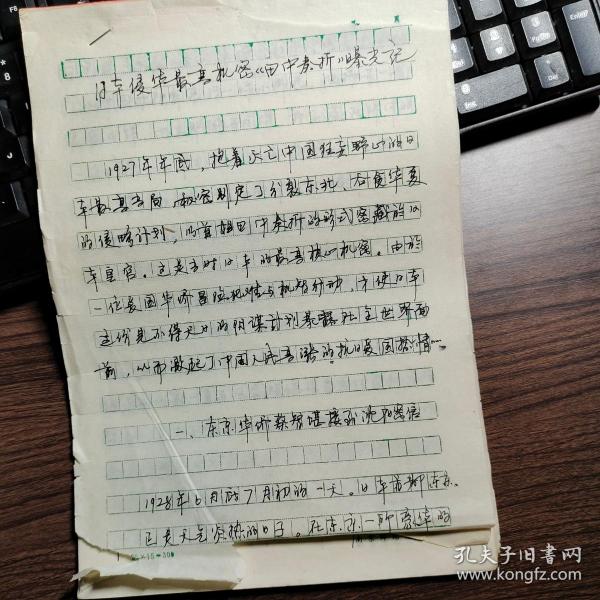 日本侵华最高机密《田中奏折》曝光记
1927年年底，抱着灭亡中国狂妄野心的日
本最高当局，秘密制定了分裂东北、吞食华夏
的侵略计划，以首相田中奏折的形式密藏於日
本皇宫。这是当时日本的最高核心机密。由於
一位爱国华侨冒险犯难与机智行动，才使日本
这份见不得天日的阴谋计划暴露在全世界面
前，从而激起了中国人民高涨的抗日爱国热情…
一、东京华侨蔡智堪接到沈阳密信
1928年6月底7月初的一天。日本首都东京
正是天气炎热的日子。在东京一所豪华的
15=300
孔夫子旧书网
www.kongfz.com